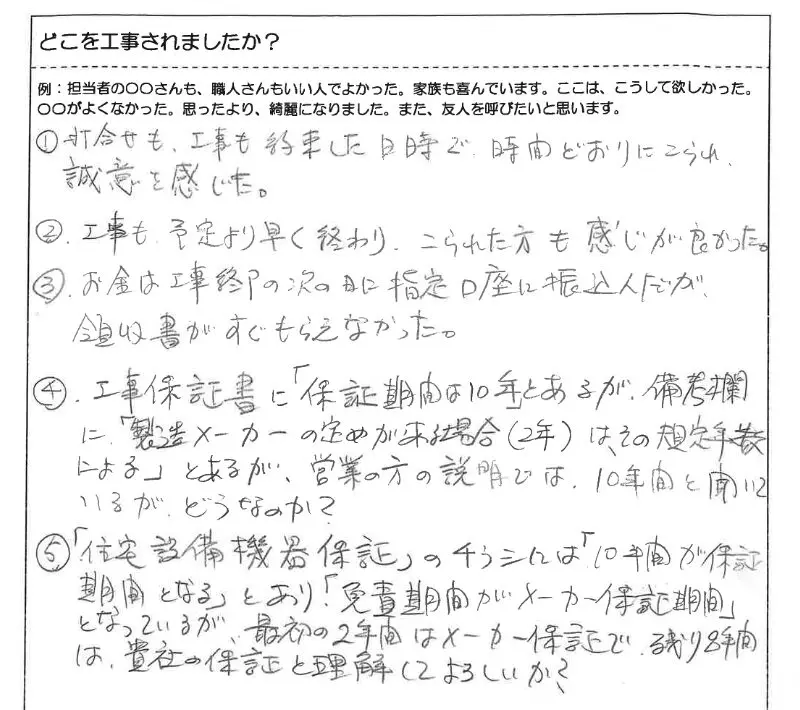 どこを工事されましたか？
例：担当者の〇〇さんも、職人さんもいい人でよかった。家族も喜んでいます。ここは、こうして欲しかった。
〇〇がよくなかった。思ったより、綺麗になりました。また、友人を呼びたいと思います。
① 打合せも、工事も約束した日時で、時間どおりにこられ、
誠意を感じた。
②. 工事も、予定より早く終わり、こられた方も感じが良かった。
③. お金は工事終了の次の日に指定口座に振込んだが、
領収書がすぐもらえなかった。
④. 工事保証書に「保証期間は10年」とあるが、備考欄
に、「製造メーカーの定めが来る場合(2年)は、その規定年数
による」とあるが、営業の方の説明では、10年間と聞いて
いるが、どうなのか？
⑤「住宅設備機器保証」のチラシには「10年間が保証
期間となる」とあり「免責期間がメーカー保証期間」
となっているが、最初の2年間はメーカー保証で、残り8年間
は、貴社の保証と理解してよろしいか？